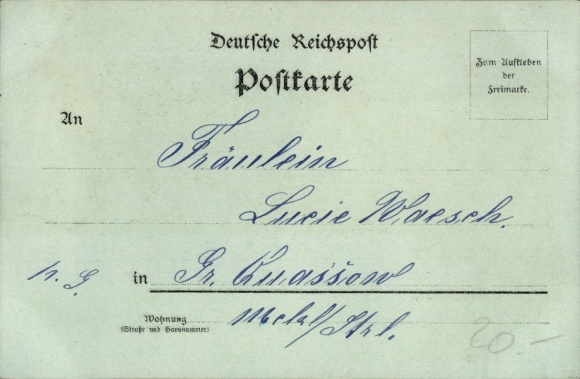 Deutsche Reichspost
Postkarte
Zum Aufkleben
der
Freimarke.
An
Fräulein
Lucie Waesch.
p. G. in Gr. Quassow
Wohnung
(Straße und Hausnummer)
Mckl/Strl.
20.-